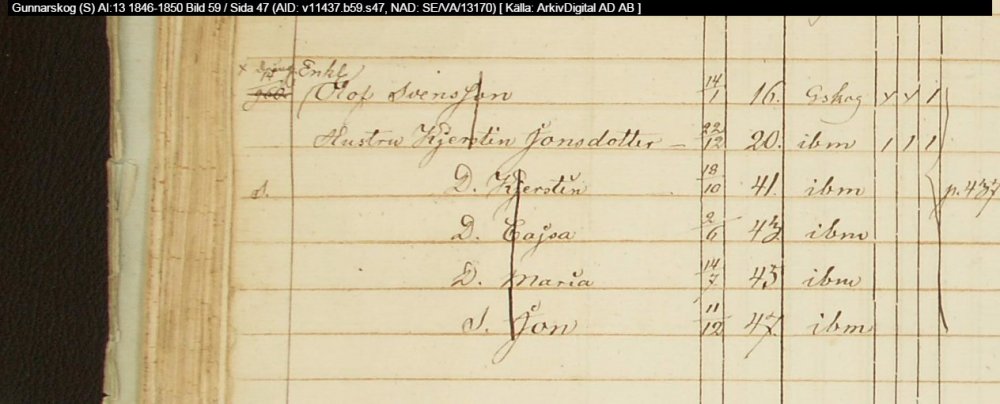 Gunnarskog (S) AI:13 1846-1850 Bild 59 / Sida 47 (AID: v11437.b59.s47, NAD: SE/VA/13170) [ Källa: ArkivDigital AD AB ]
Enkl
Olof Svensson 14/1 16. Gskog
Hustru Kjerstin Jonsdotter – 22/12 20. ibm
s. D. Kjerstin 18/10 41 ibm p. 437
D. Cajsa 2/6 43 ibm
D. Maria 14/7 45 ibm
S. Jon 11/12 47 ibm